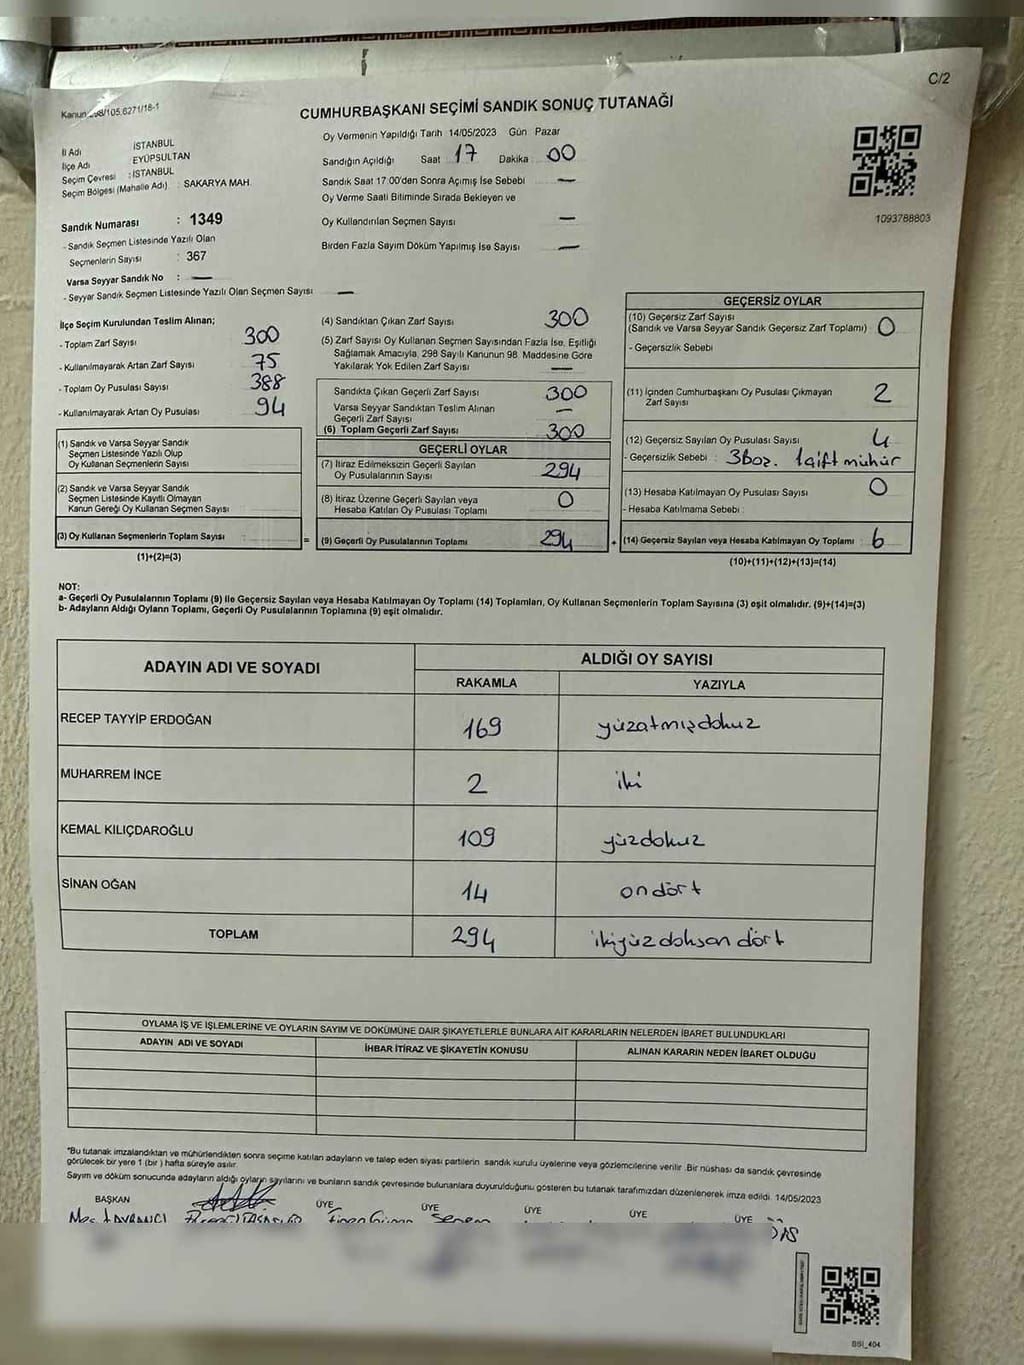 C/2
Kanun 298/105.6271/18-1
CUMHURBAŞKANI SEÇİMİ SANDIK SONUÇ TUTANAĞI
İl Adı İSTANBUL
İlçe Adı EYÜPSULTAN
Seçim Çevresi : İSTANBUL
Seçim Bölgesi (Mahalle Adı) : SAKARYA MAH.
Sandık Numarası : 1349
- Sandık Seçmen Listesinde Yazılı Olan
Seçmenlerin Sayısı : 367
Varsa Seyyar Sandık No : —
- Seyyar Sandık Seçmen Listesinde Yazılı Olan Seçmen Sayısı —
Oy Vermenin Yapıldığı Tarih 14/05/2023 Gün Pazar
Sandığın Açıldığı Saat 17 Dakika 00
Sandık Saat 17:00'den Sonra Açımış İse Sebebi —
Oy Verme Saati Bitiminde Sırada Bekleyen ve
Oy Kullandırılan Seçmen Sayısı —
Birden Fazla Sayım Döküm Yapılmış İse Sayısı —
1093788803
İlçe Seçim Kurulundan Teslim Alınan;
- Toplam Zarf Sayısı 300
- Kullanılmayarak Artan Zarf Sayısı 75
- Toplam Oy Pusulası Sayısı 388
- Kullanılmayarak Artan Oy Pusulası 94
(1) Sandık ve Varsa Seyyar Sandık
Seçmen Listesinde Yazılı Olup
Oy Kullanan Seçmenlerin Sayısı
(2) Sandık ve Varsa Seyyar Sandık
Seçmen Listesinde Kayıtlı Olmayan
Kanun Gereği Oy Kullanan Seçmen Sayısı
(3) Oy Kullanan Seçmenlerin Toplam Sayısı
(1)+(2)=(3)
(4) Sandıktan Çıkan Zarf Sayısı 300
(5) Zarf Sayısı Oy Kullanan Seçmen Sayısından Fazla İse, Eşitliği
Sağlamak Amacıyla, 298 Sayılı Kanunun 98. Maddesine Göre
Yakılarak Yok Edilen Zarf Sayısı —
Sandıkta Çıkan Geçerli Zarf Sayısı 300
Varsa Seyyar Sandıktan Teslim Alınan
Geçerli Zarf Sayısı —
(6) Toplam Geçerli Zarf Sayısı 300
GEÇERLİ OYLAR
(7) İtiraz Edilmeksizin Geçerli Sayılan
Oy Pusulalarının Sayısı 294
(8) İtiraz Üzerine Geçerli Sayılan veya
Hesaba Katılan Oy Pusulası Toplamı 0
= (9) Geçerli Oy Pusulalarının Toplamı 294 +
GEÇERSİZ OYLAR
(10) Geçersiz Zarf Sayısı
(Sandık ve Varsa Seyyar Sandık Geçersiz Zarf Toplamı) 0
- Geçersizlik Sebebi
(11) İçinden Cumhurbaşkanı Oy Pusulası Çıkmayan
Zarf Sayısı 2
(12) Geçersiz Sayılan Oy Pusulası Sayısı 4
- Geçersizlik Sebebi : 3 Boz. 1 çift mühür
(13) Hesaba Katılmayan Oy Pusulası Sayısı 0
- Hesaba Katılmama Sebebi :
(14) Geçersiz Sayılan veya Hesaba Katılmayan Oy Toplamı : 6
(10)+(11)+(12)+(13)=(14)
NOT:
a- Geçerli Oy Pusulalarının Toplamı (9) ile Geçersiz Sayılan veya Hesaba Katılmayan Oy Toplamı (14) Toplamları, Oy Kullanan Seçmenlerin Toplam Sayısına (3) eşit olmalıdır. (9)+(14)=(3)
b- Adayların Aldığı Oyların Toplamı, Geçerli Oy Pusulalarının Toplamına (9) eşit olmalıdır.
ADAYIN ADI VE SOYADI ALDIĞI OY SAYISI
RAKAMLA YAZIYLA
RECEP TAYYİP ERDOĞAN 169 yüzatmışdokuz
MUHARREM İNCE 2 iki
KEMAL KILIÇDAROĞLU 109 yüzdokuz
SİNAN OĞAN 14 ondört
TOPLAM 294 ikiyüzdoksan dört
OYLAMA İŞ VE İŞLEMLERİNE VE OYLARIN SAYIM VE DÖKÜMÜNE DAİR ŞİKAYETLERLE BUNLARA AİT KARARLARIN NELERDEN İBARET BULUNDUKLARI
ADAYIN ADI VE SOYADI İHBAR İTİRAZ VE ŞİKAYETİN KONUSU ALINAN KARARIN NEDEN İBARET OLDUĞU
*Bu tutanak imzalandıktan ve mühürlendikten sonra seçime katılan adayların ve talep eden siyasi partilerin sandık kurulu üyelerine veya gözlemcilerine verilir. Bir nüshası da sandık çevresinde
görülecek bir yere 1 (bir ) hafta süreyle asılır.
Sayım ve döküm sonucunda adayların aldığı oyların sayılarını ve bunların sandık çevresinde bulunanlara duyurulduğunu gösteren bu tutanak tarafımızdan düzenlenerek imza edildi. 14/05/2023
BAŞKAN ÜYE ÜYE ÜYE ÜYE ÜYE
BSI_404